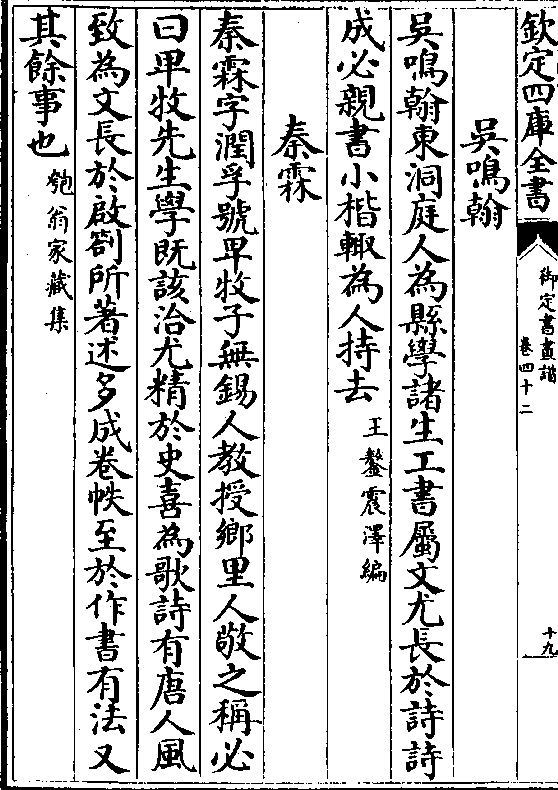 欽定四庫全書
御定書畫譜
卷四十二
十九
吳鳴翰
吳鳴翰東洞庭人為縣學諸生工書屬文尤長於詩詩
成必親書小楷輙為人持去
王鏊震澤編
秦霖
秦霖字潤孚號卑牧子無錫人教授鄉里人敬之稱必
曰卑牧先生學既該洽尤精於史喜為歌詩有唐人風
致為文長於啟劄所著述多成卷帙至於作書有法又
其餘事也
匏翁家藏集